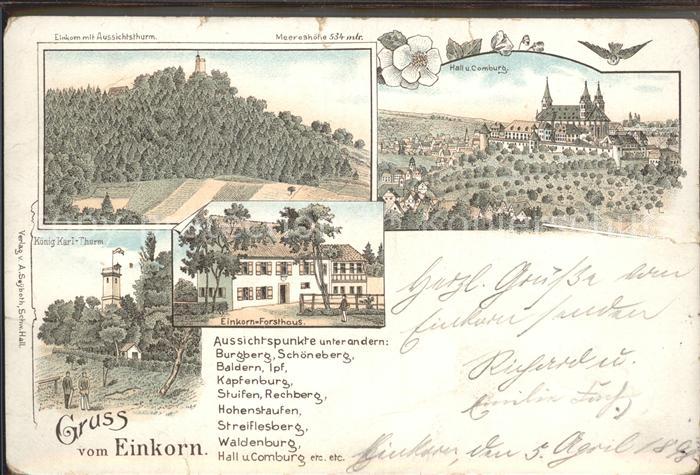 Einkorn mit Aussichtsthurm.
Meereshöhe 534 mtr.
Hall u. Comburg.
König Karl-Thurm
Verlag v. A. Seyboth, Schw. Hall.
Einkorn-Forsthaus.
Aussichtspunkte unter andern:
Burgberg, Schöneberg,
Baldern, Ipf,
Kapfenburg,
Stuifen, Rechberg,
Hohenstaufen,
Streiflesberg,
Waldenburg,
Hall u Comburg etc. etc.
Gruss
vom Einkorn.
Herzl. Grüße von
Einkorn senden
Richard u.
Emilie
Einkorn, den 5. April